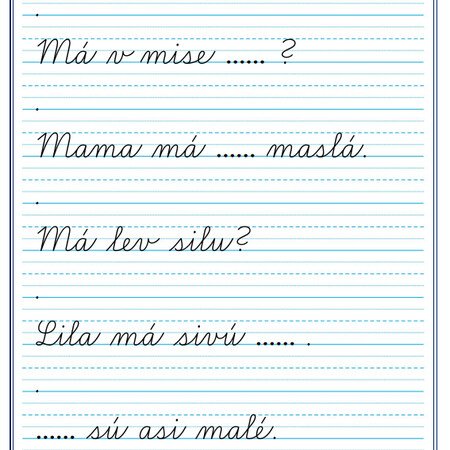 .
Má v mise ...... ?
.
Mama má ...... maslá.
.
Má lev silu?
.
Lila má sivú ...... .
.
...... sú asi malé.